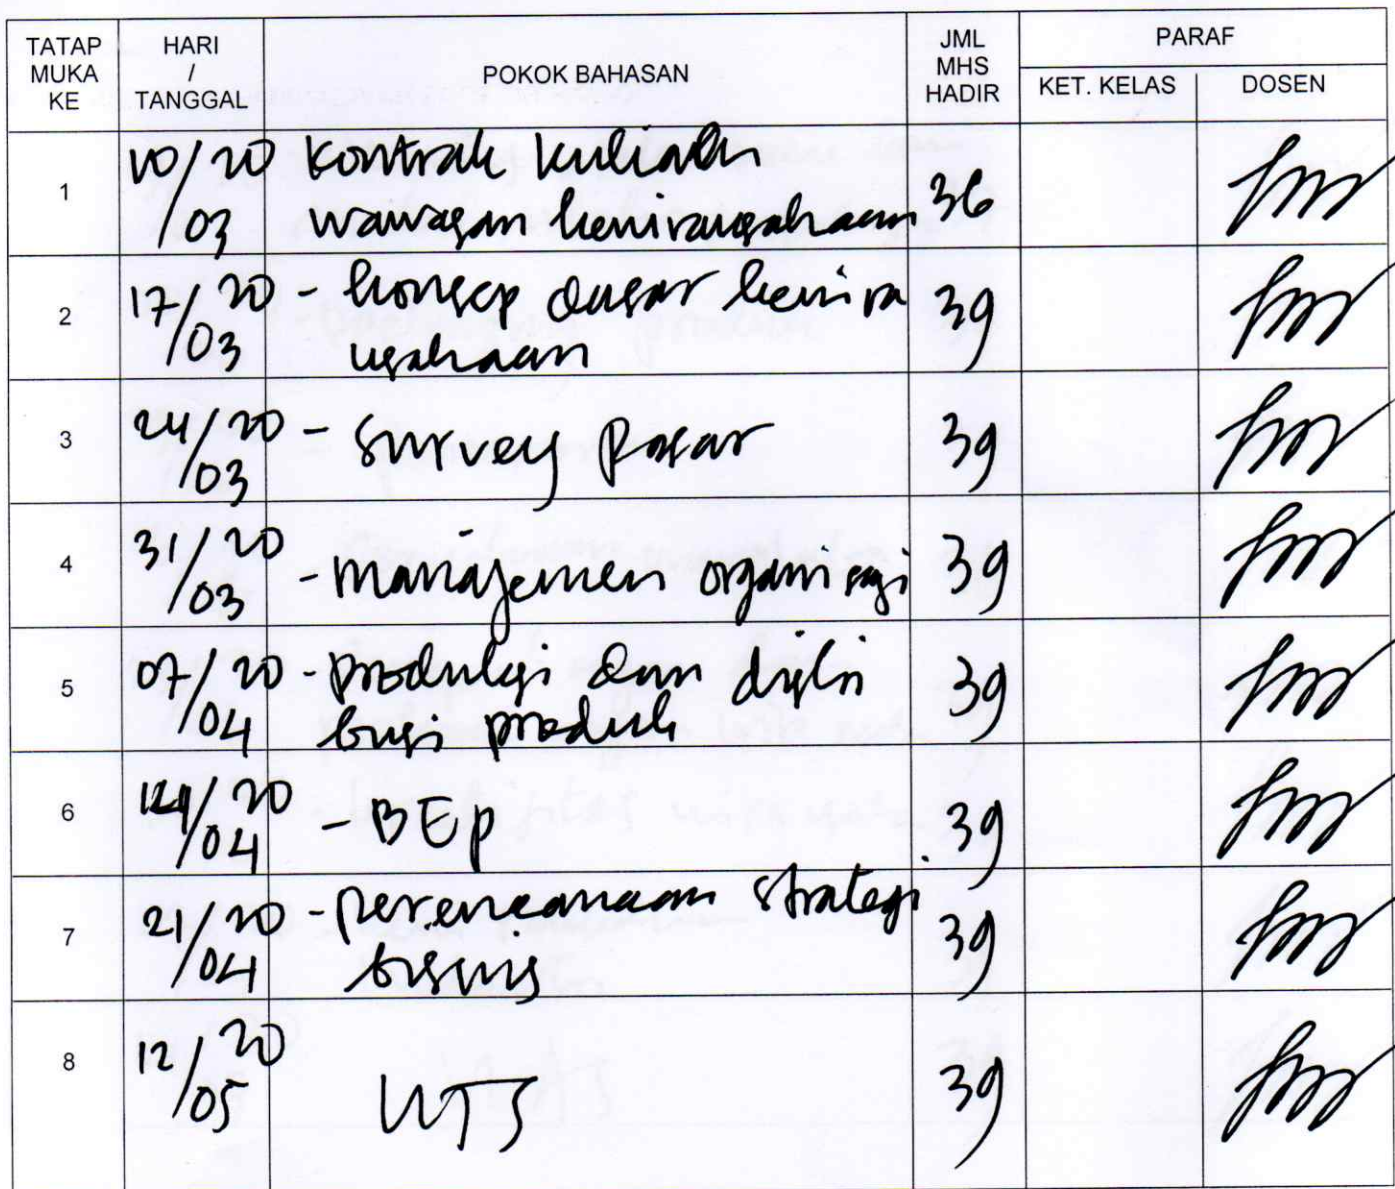 TATAP MUKA KE | HARI / TANGGAL | POKOK BAHASAN | JML MHS HADIR | PARAF
KET. KELAS | DOSEN
1 | 10/03 20 | Kontrak kuliah | 36
wawasan kewirausahaan
2 | 17/03 20 | - konsep dasar kewira | 39
usahaan
3 | 24/03 20 | - survey pasar | 39
4 | 31/03 20 | - manajemen organisasi | 39
5 | 07/04 20 | - produksi dan distri | 39
busi produk
6 | 14/04 20 | - BEP | 39
7 | 21/04 20 | - perencanaan strategi | 39
bisnis
8 | 12/05 20 | UTS | 39